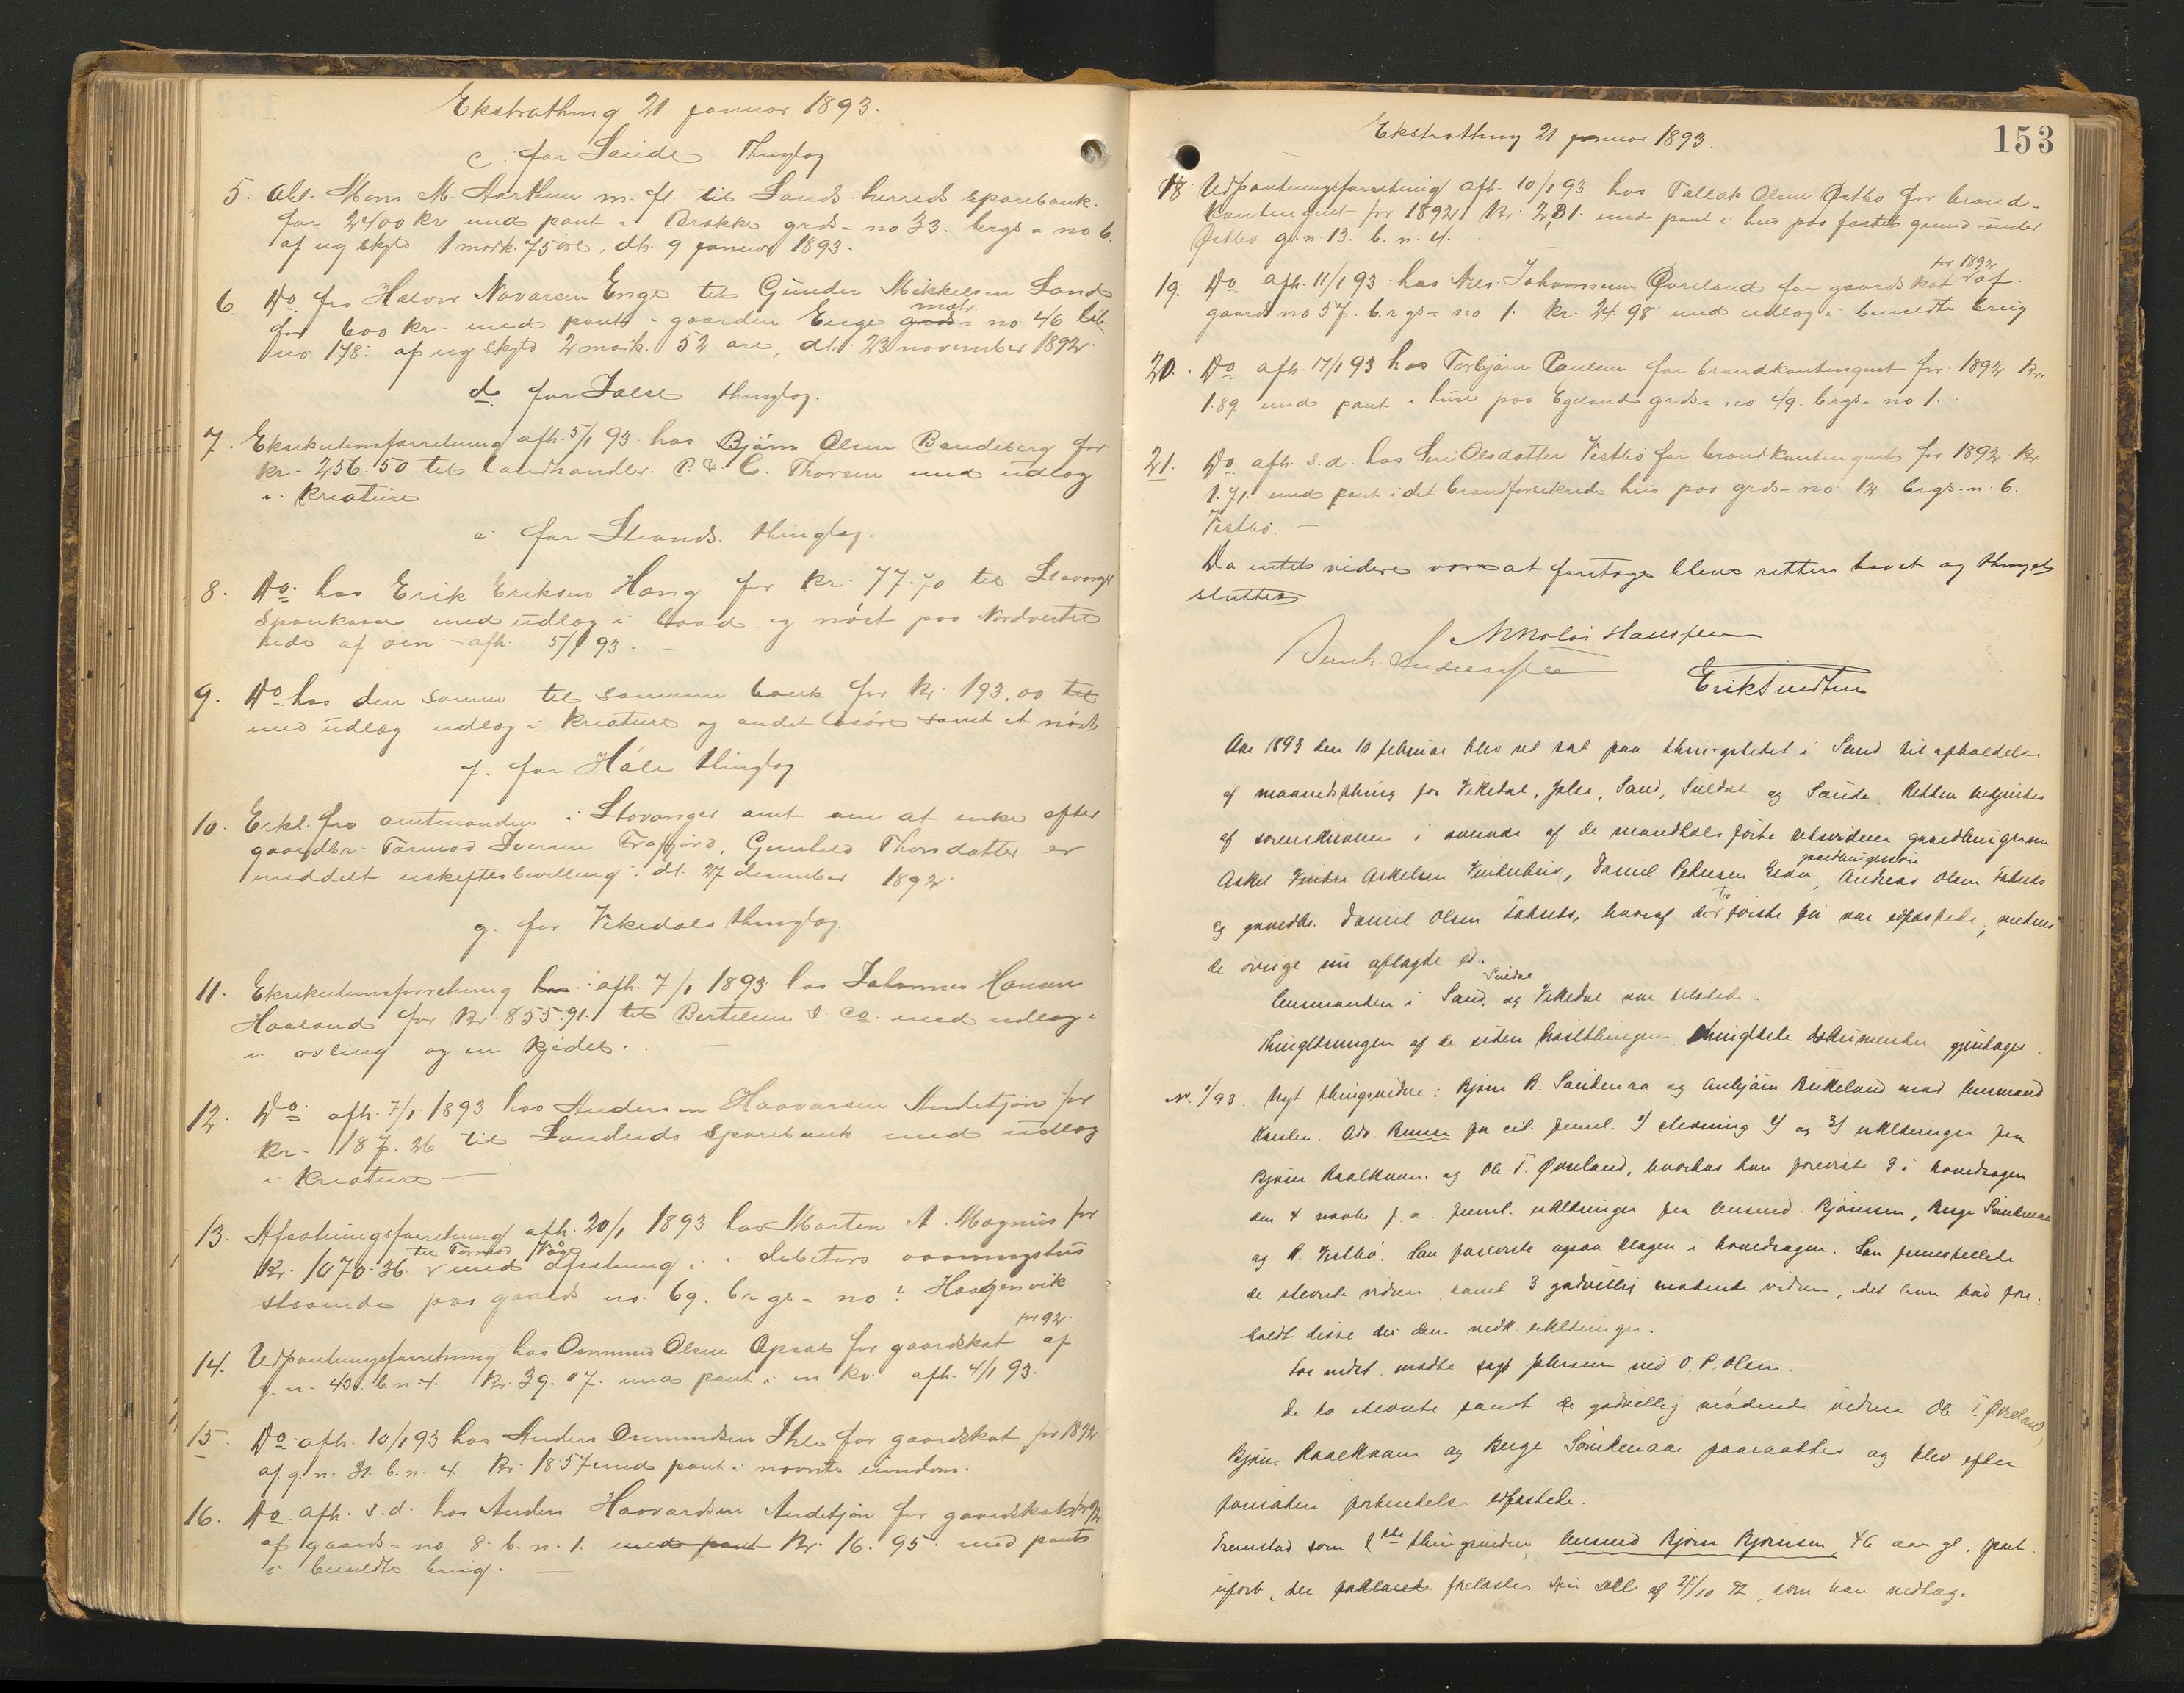 Ekstrathing 21 januar 1893.
c. for Saude Thinglag
5. Obl. Mons M. Aarthun m. fl. til Sands herreds sparebank.
for 2400 kr med pant i Brakke grds-no 33. brgs-no 6.
af ny skyld 1 mark. 75 øre, dt. 9 januar 1893.
6. Do fra Halvor Navarsen Enge til Gunder Mikkelsen Sand
for 600 kr. med pant i gaarden Enge grds- matr. no 46 lit.
no 178. af ny skyld 2 mark. 52 øre, dt. 23 november 1892.
d. for Jælse thinglag.
7. Eksekutionsforretning afh. 5/1 93 hos Bjørn Olsen Bandeberg for
kr. 256.50 til landhandler. P. & C. Thorsen med udlæg
i kreature
e. for Strands. thinglag.
8. Do. hos Erik Eriksen Haeng for kr. 77.70 til Stavanger
Sparekasse med udlæg i baad og nøst paa Nordvestre
side af øen - afh. 5/1 93.
9. Do hos den samme til samme bank for kr. 193.00 til
med udlæg udlæg i kreature og andet løsøre samt et nøst
f. for Håle thinglag
10. Erkl. fra amtmanden i Stavanger amt om at enke efter
gaardbr. Tormod Iversen Frafjord, Gunhild Thorsdatter er
meddelt uskiftesbevilling: dt. 27 desember 1892.
g. for Vikedals thinglag.
11. Eksekutionsforretning hos afh. 7/1 1893 hos Johannes Hansen
Haaland for kr. 855.91. til Bertelsen & Co. med udlæg i
i avling og en kjedel.
12. Do afh. 7/1 1893 hos Anders Haavarsen Andetjøn for
kr. 187.26 til Sandeids Sparebank med udlæg
i kreature
13. Afsætningsforretning afh. 20/1 1893 hos Morten A. Magnus for
kr. 1070.36 til Tormod Våge med afsetning i debitors vaaningshus
staaende paa gaards no. 69. brgs-no ? Haagenvik
14. Udpantningsforretning hos Osmund Olsen Opsal for gaardskat for 92. af
g. n. 43. b. n 4. Kr. 39.07. med pant i en ko. afh. 4/1 93.
15. Do. afh. 10/1 93 hos Anders Osmundsen Ihle for gaardskat for 1892
af g. n. 31. b. n. 4. Kr. 18.57 med pant i nævnte eiendom.
16. Do. afh. s.d. hos Anders Haavardsen Andetjøn for gaardskat for 92
af gaards-no 8. b. n. 1. med pant Kr. 16.95. med pant
i bemeldte brug.
Ekstrathing 21 januar 1893.
153
18. Udpantningsforretning afh. 10/1 93 hos Tallak Olsen Østbø for brand-
kontingent for 1892 Kr. 2,31. med pant i hus paa fæstet grund under
Østbø g. n. 13. b. n. 4.
19. Do afh. 11/1 93. hos Nils Johannesen Øvreland for gaardskat for 1892 af
gaards no 57. brgs-no 1. kr. 24.98 med udlæg i bemeldte brug
20. Do afh. 17/1 93 hos Torbjørn Paulsen for brandkontingent for 1892 kr.
1.89. med pant i huse paa Egeland grds-no 49. brgs-no 1.
21. Do. afh. s.d. hos Siri Olsdatter Vestbø for brandkontingent for 1892 kr
1.71. med pant i det brandforsikrede hus paa grds-no 12 brgs-n. 6.
Vestbø.
Da intet videre var at foretage blev retten hævet og thinget
sluttet
Nikolai Hansen
Bernh. Anderssen
Erik Sundten
Aar 1893 den 10 februar blev ret sat paa thingstedet i Sand til afholdelse
af maanedsthing for Vikedal, Jelse, Sand, Suldal og Saude. Retten betjentes
af sorenskriveren i overvær af de mandtalsførte retsvidner gaardbrugerne
Askel Vindus Askelsen Vinterhus, Daniel Pedersen Eide, gaardbrugersøn Andreas Olsen Foknes
og gaardbr. Daniel Olsen Foknes, hvoraf de to første før var edfæstede, medens
de øvrige nu aflagde ed.
Lensmanden i Sand, Suldal og Vikedal var tilstede.
Thinglæsningen af de siden høstthingene thinglæste dokumenter gjentages.
No. 1/93. Nyt thingsvidne: Bjørn B. Sandenaa og Asbjørn Birkeland mod lensmand
Kaarlen. Adv. Bruun for cit. freml. 1) stevning 2) og 3) erklæringer fra
Bjørn Raalkvam og Ole T. Øvreland, hvorhos han foreviste 3 i hovedsagen
den 4 novbr f. a. freml. erklæringer fra lensmd. Bjørnsen, Berge Sandenaa
og R. Vestbø. Han foreviste ogsaa klagen i hovedsagen. Han fremstillede
de stevnte vidner samt 3 godvillig mødende vidner, idet han bad fore-
holdt disse de dem vedk. erklæringer.
For indst. mødte sagf. Johnsen ved O. P. Olsen.
De to stevnte samt de godvillig mødende vidner Ole T. Øvreland,
Bjørn Raalkvam og Berge Sandenaa paaraabtes og blev efter
foregaaende formaning edfæstede.
Fremstod som 1ste thingsvidne lensmd Bjørn Bjørnsen, 46 aar gl., part.
uforb., der forklarede forelæstes sin erkl. af 27/10 92, som han vedtog.